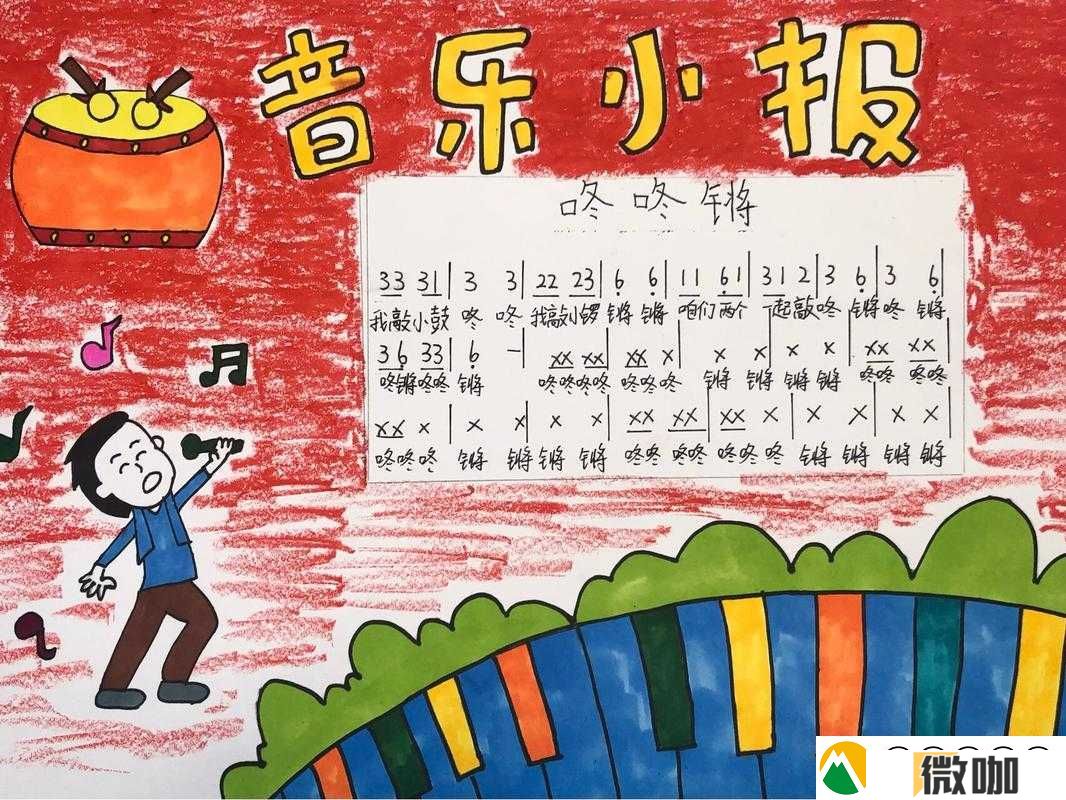 音乐小报
咚咚锵
33 31| 3 3| 22 23| 6̣ 6̣| 11 6̣1| 31 2| 3 6̣| 3 6̣|
我敲小鼓 咚 咚 我敲小锣 锵 锵 咱们两个 一起敲 咚 锵 咚 锵
36̣ 33| 6̣ —| xx xx| xx x| x x| x x| xx xx|
咚锵咚咚 锵 咚咚咚咚 咚咚咚 锵 锵 锵 锵 咚咚 咚咚
xx x| x x| x x| xx xx| xx x| x x| x x|
咚咚咚 锵 锵 锵 锵 咚咚 咚咚 咚咚 咚 锵 锵 锵 锵
微咖